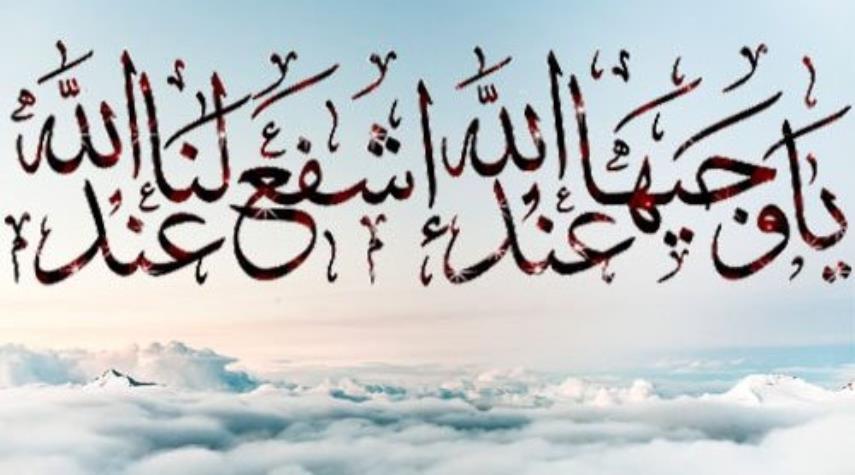 يا وجيها عند الله إشفع لنا عند الله